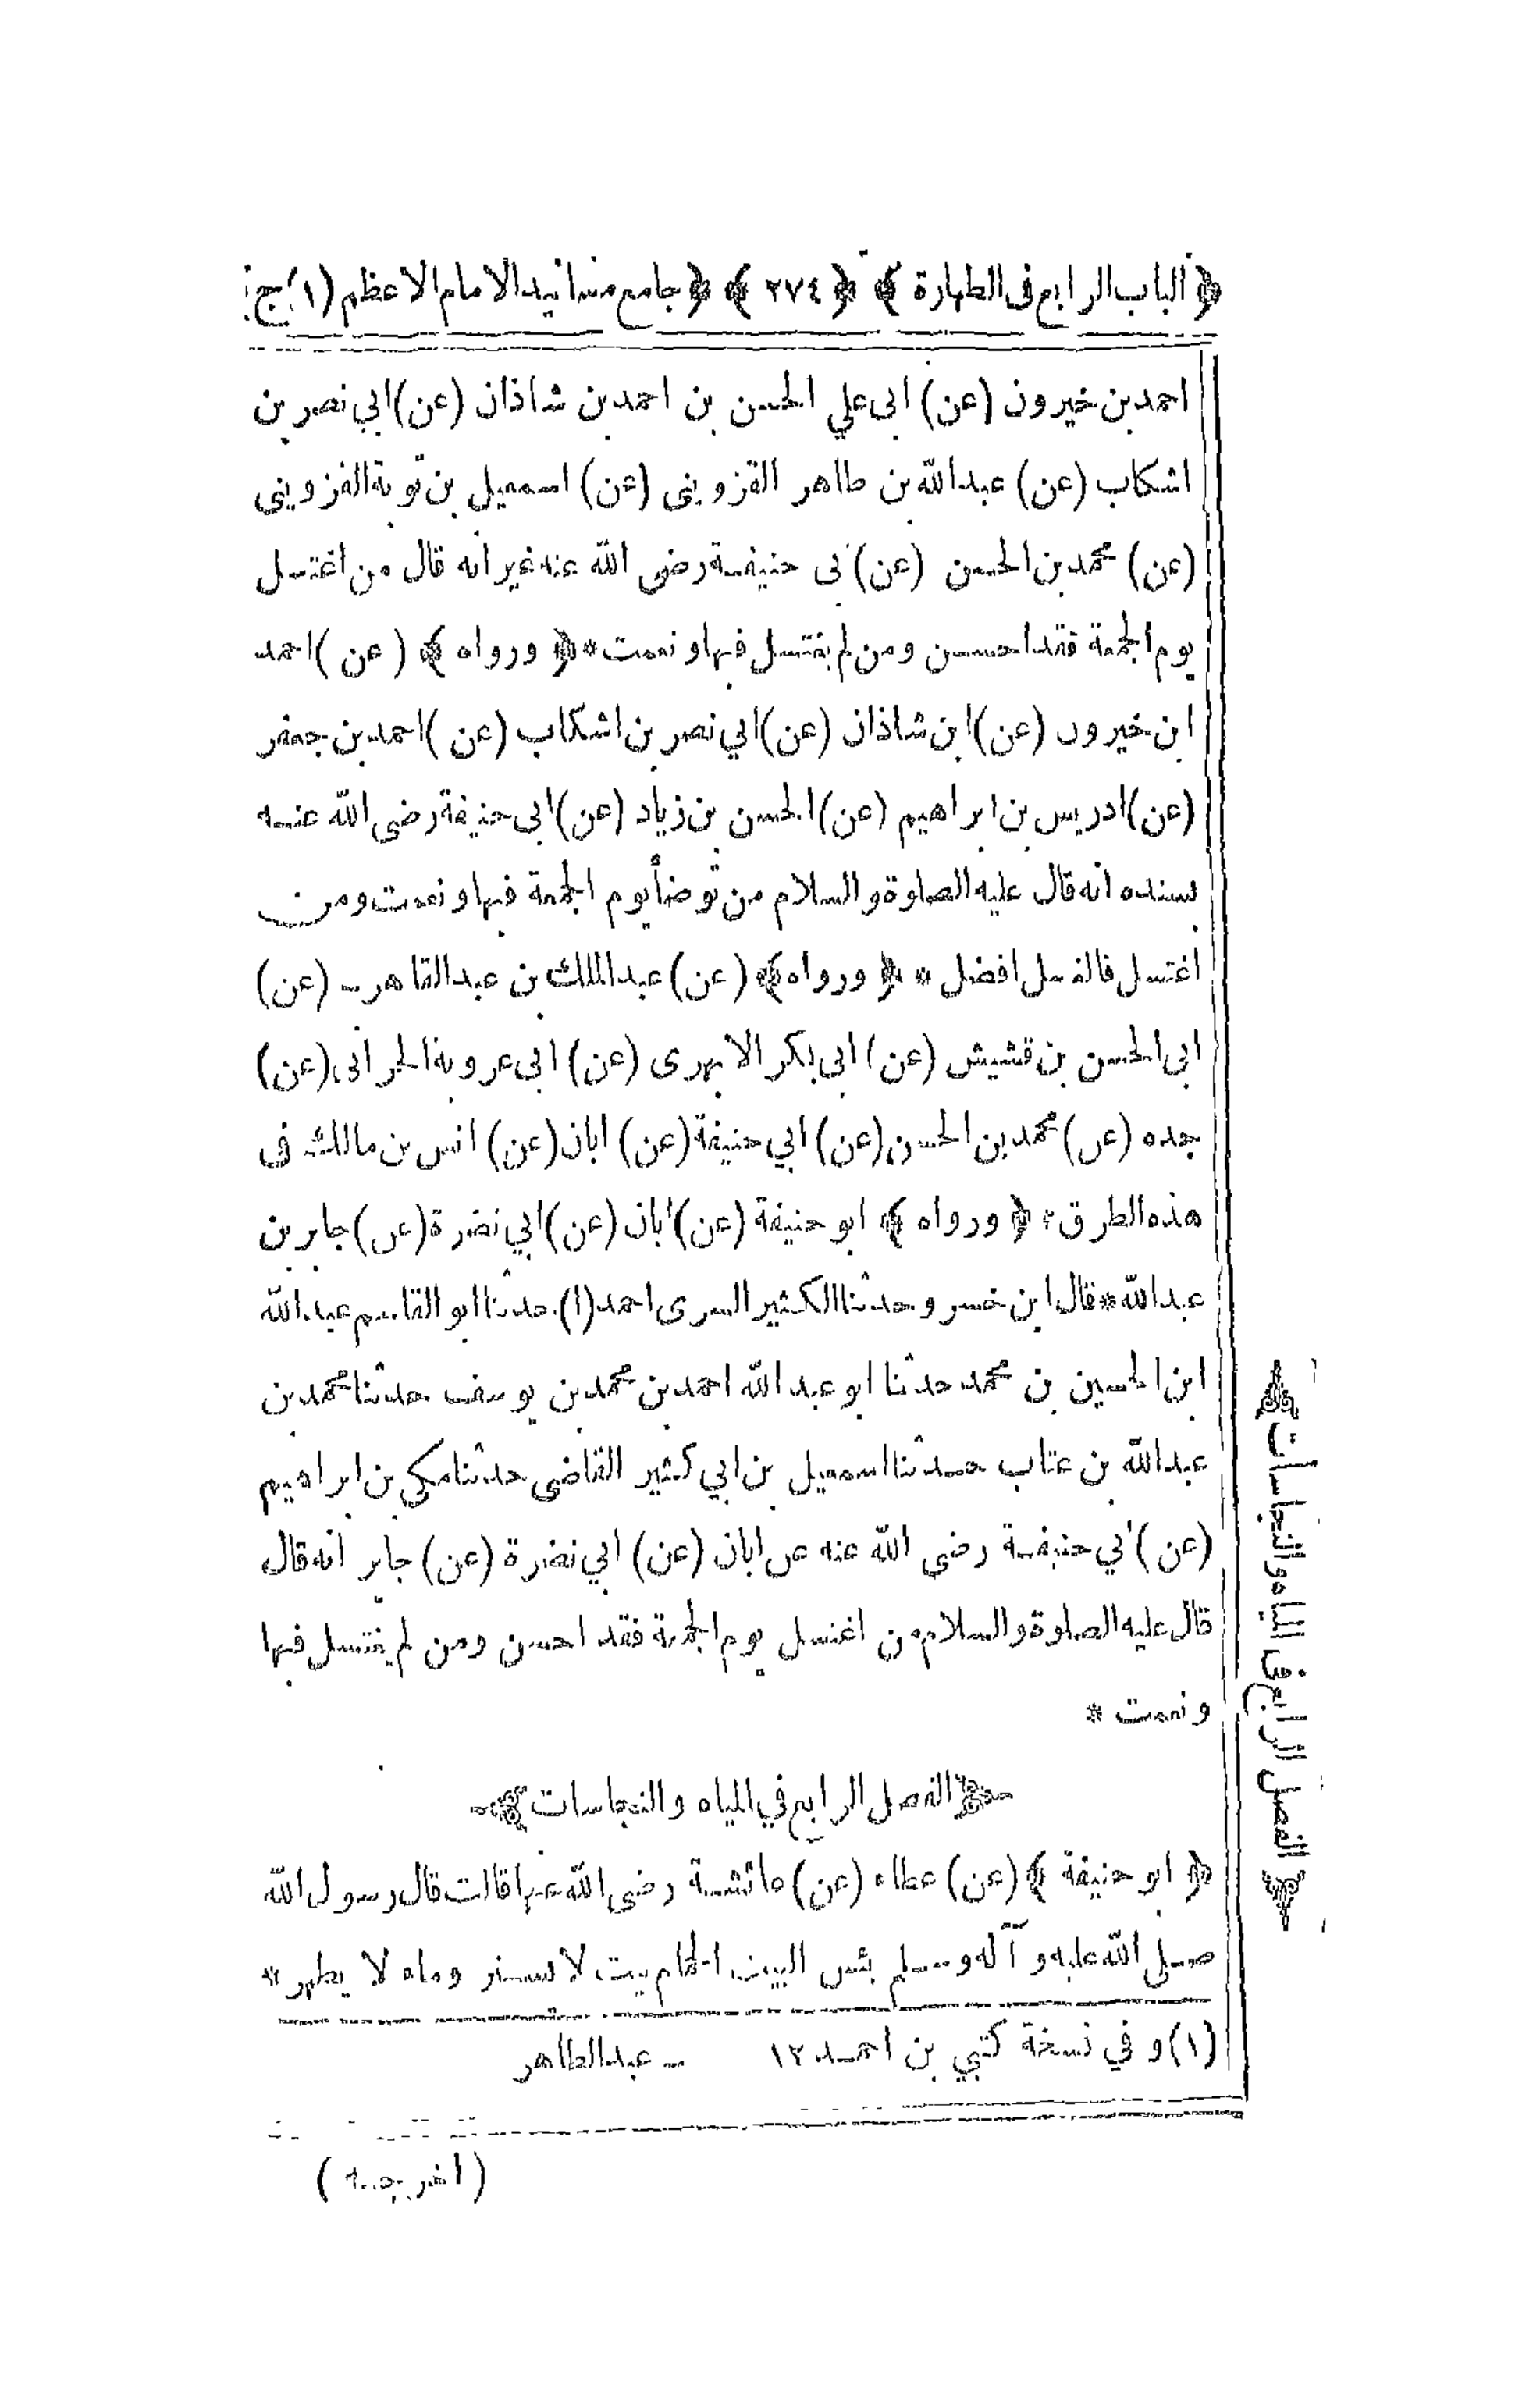 ﴿ الباب الرابع فى الطهارة ﴾ ﴿ ٢٧٤ ﴾ ﴿ جامع مسانيد الامام الاعظم (١) ج
احمد بن خيرون (عن) ابى علي الحسن بن احمد بن شاذان (عن) ابي نصر بن
اشكاب (عن) عبد الله بن طاهر القزوينى (عن) اسمعيل بن توبة القزوينى
(عن) محمد بن الحسن (عن) بى حنيفة رضى الله عنه غير انه قال من اغتسل
يوم الجمعة فقد احسن ومن لم يغتسل فبها ونعمت * ﴿ ورواه ﴾ (عن) احمد
ابن خيرون (عن) ابن شاذان (عن) ابي نصر بن اشكاب (عن) احمد بن جعفر
(عن) ادريس بن ابراهيم (عن) الحسن بن زياد (عن) ابى حنيفة رضى الله عنه
بسنده انه قال عليه الصلوة والسلام من توضأ يوم الجمعة فبها ونعمت ومن
اغتسل فالغسل افضل * ﴿ ورواه ﴾ (عن) عبد الملك بن عبد القاهر ـ (عن)
ابى الحسن بن قشيش (عن) ابى بكر الابهرى (عن) ابى عروبة الحرانى (عن)
جده (عن) محمد بن الحسن (عن) ابي حنيفة (عن) ابان (عن) انس بن مالك فى
هذه الطرق * ﴿ ورواه ﴾ ابو حنيفة (عن) ابان (عن) ابي نضرة (عن) جابر بن
عبد الله * قال ابن خسرو حدثنا الكثير السرى احمد (١) حدثنا ابو القاسم عبد الله
ابن الحسين بن محمد حدثنا ابو عبد الله احمد بن محمد بن يوسف حدثنا محمد بن
عبد الله بن عتاب حدثنا اسمعيل بن ابي كثير القاضى حدثنا مكي بن ابراهيم
(عن) ابي حنيفة رضى الله عنه عن ابان (عن) ابي نضرة (عن) جابر انه قال
قال عليه الصلوة والسلام من اغتسل يوم الجمعة فقد احسن ومن لم يغتسل فبها
ونعمت *
الفصل الرابع في المياه والنجاسات
﴿ ابو حنيفة ﴾ (عن) عطاء (عن) عائشة رضى الله عنها قالت قال رسول الله
صلى الله عليه وآله وسلم بئس البيت الحمام بيت لا يستر وماء لا يطهر *
(١) و في نسخة كتبي بن احمد ١٢ ـ عبد الطاهر
الفصل الرابع فى المياه والنجاسات